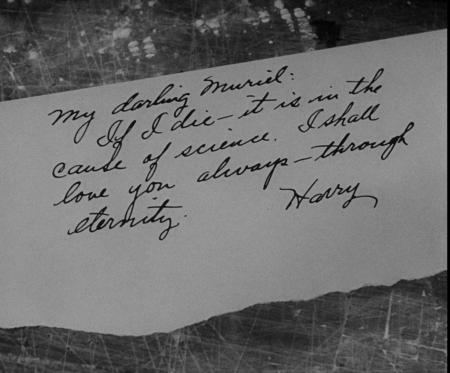 My darling Muriel:
If I die—it is in the
cause of science. I shall
love you always—through
eternity.
Harry